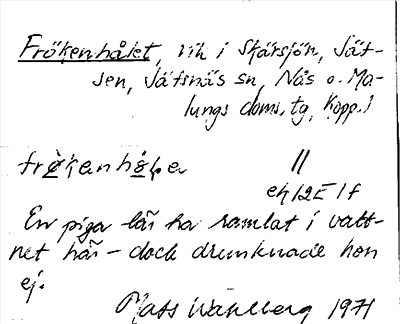 Frökenhålet, vik i Skärsjön, Sät-
sen, Jätsnäs sn, Nås o. Ma-
lungs doms. tg, Kopp. l
frökenhålet //
ek 12E 1f
En piga lär ha ramlat i vatt-
net här - dock drunknade hon
ej.
Mats Wahlberg 1971